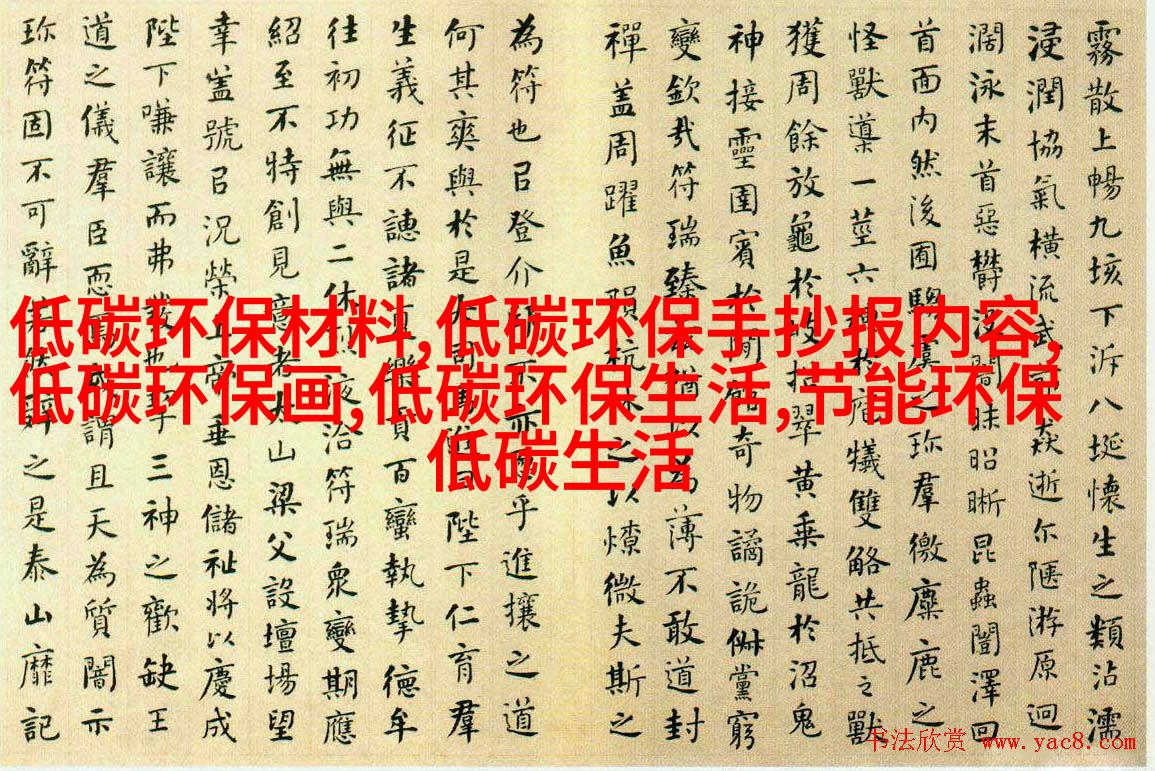 霧散上暢九垓下泝八埏懷生之類沾濡
浸潤協氣橫流武猋逝尓陿游原迥
濶泳末首惡欝沒闇昧昭晰昆蟲闓澤回
首面内然後囿騶虞之珎羣徼麋鹿之
怪獸導一莖六於庖犧雙觡共抵之獸
獲周餘放龜於岐招翠黄乗龍於沼鬼
神接靈圉賓於閒奇物譎詭俶黨窮
變欽哉符瑞臻猶以為薄不敢道封
禪盖周躍魚隕杭休之以燎微夫斯之
為符也㠯登介不亦乎進攘之道
何其爽與於是大司曰陛下仁育羣
生義征不譓諸夏樂貢百蠻執摯德牟
往初功無與二休洽符瑞衆變期應
紹至不特創見意者太山梁父設壇場望
幸盖號㠯況榮上帝垂恩儲祉將以慶成
陛下嗛讓而弗發也三神之歡缺王
道之儀羣臣恧謂且天為質闇示
珎符固不可辭之是泰山靡記
低碳环保材料,低碳环保手抄报内容,
低碳环保画,低碳环保生活,节能环保
低碳生活
书法欣赏 www.yac8.com